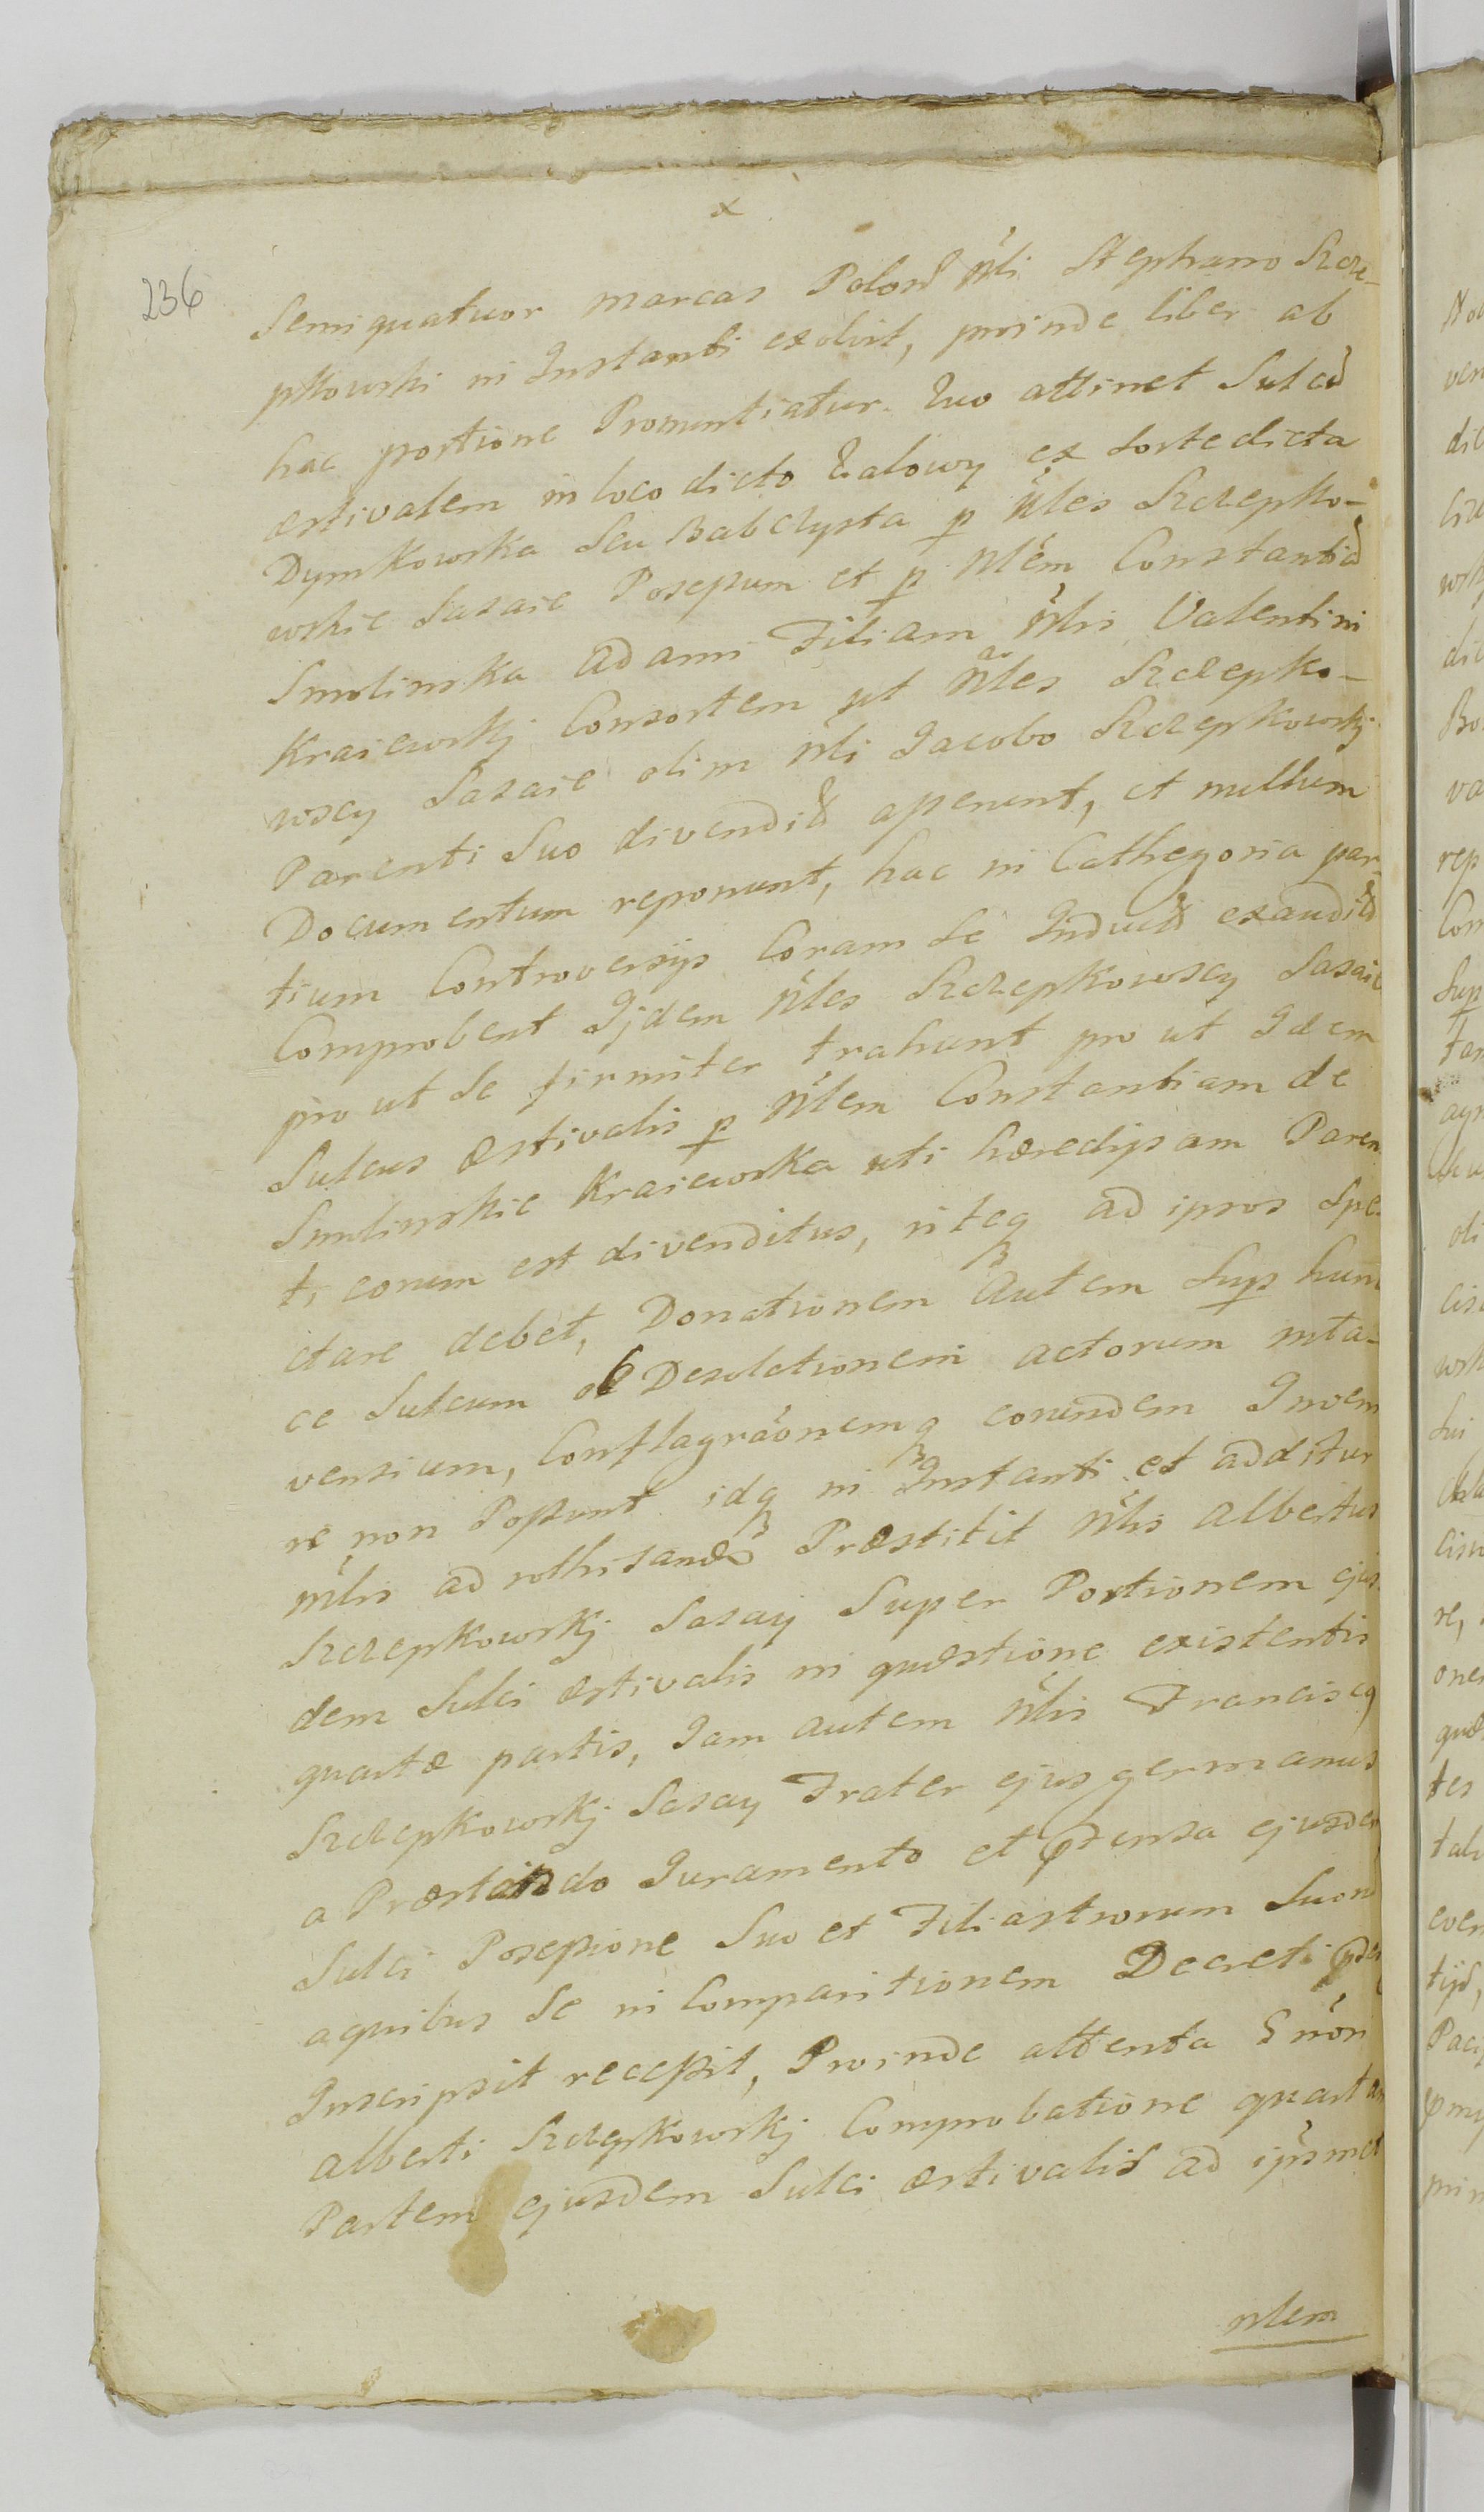 x
236
Semiquatuor marcas Polon Nli Stephano Szcze-
pkowski in Instanti exolvit, proinde liber ab
hac portione Pronuntiatur. Quo attinet Sulcu
æstivalem in loco dicto Zalowy ex Sorte dicta
Dymkowska Seu Babczysta p Nles Szczepko-
wskie Sasaie Posessum et p Nlem Constantia
Smolinska Adami Filiam Nlis Valentini
Kraiewskj Consortem ut Nles Szczepko-
wscy Sasaie olim Nli Jacobo Szczepkowskj
Parenti Suo divendit asserunt, et nullum
Documentum reponunt, hac in Cathegoria par-
tium Controversijs Coram Se Induct exaudit
Comprobent Ijdem Nles Szczepkowscy Sasaie
pro ut Se firmiter trahunt pro ut Idem
Sulcus æstivalis p Nlem Constantiam de
Smolinskie Kraiewska uti hæredissam Paren
ti eorum est divenditus, iteq ad ipsos Spe-
ctare debet, Donationem Autem Sup hun
ce Sulcum ob Desolationem actorum mta-
vensium, Conflagraonemq eorundem Inven
re non Possunt idq in Instanti et additur
Nlis ad rothisand Præstitit Nlis Albertus
Szczepkowskj Sasay Super Portionem ejus
dem Sulci æstivalis in quæstione existentis
quartæ partis, Jam autem Nlis Franciscq
Szczepkowskj Sasay Frater ejus germanus
a Præstando Juramento et prensa ejusdem
Sulci Posessione Suo et Filiastrorum Suor
a quibus Se in Comparitionem Decreti pnti
Inscripsit recessit, Proinde attenta Gnon
Alberti Szczepkowskj Comprobatione quartam
Partem ejusdem Sulci æstivalis ad ipsmet
nlem